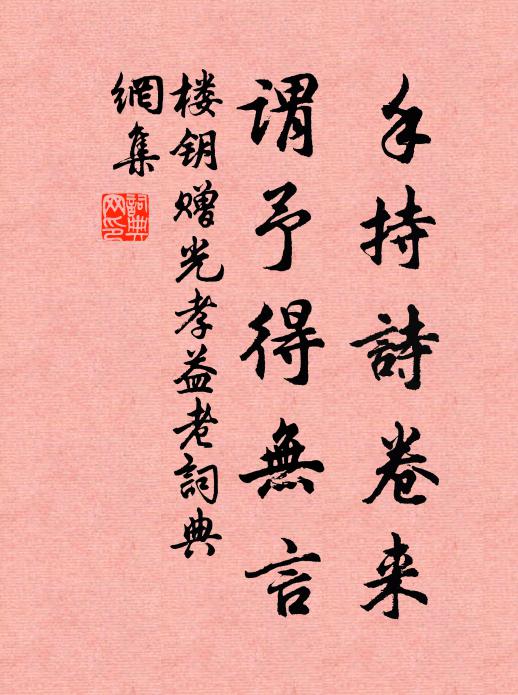 手持詩卷来
謂予得無言
楼钥赠光孝益老詞典
網集
詞典
网印